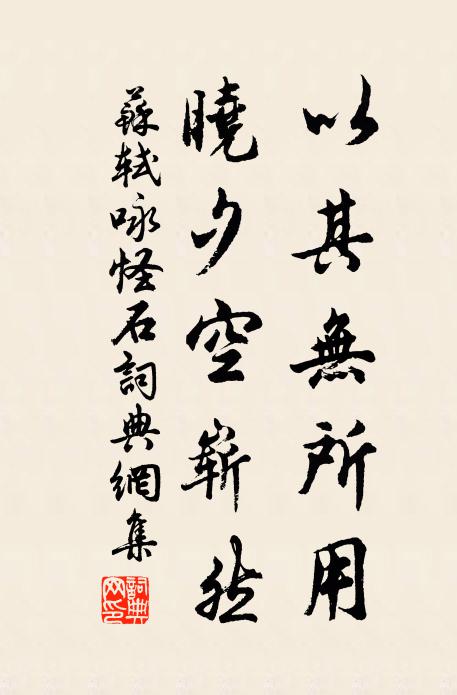 以其無所用
曉夕空嶄然
蘇軾咏怪石詞典網集
詞典網印